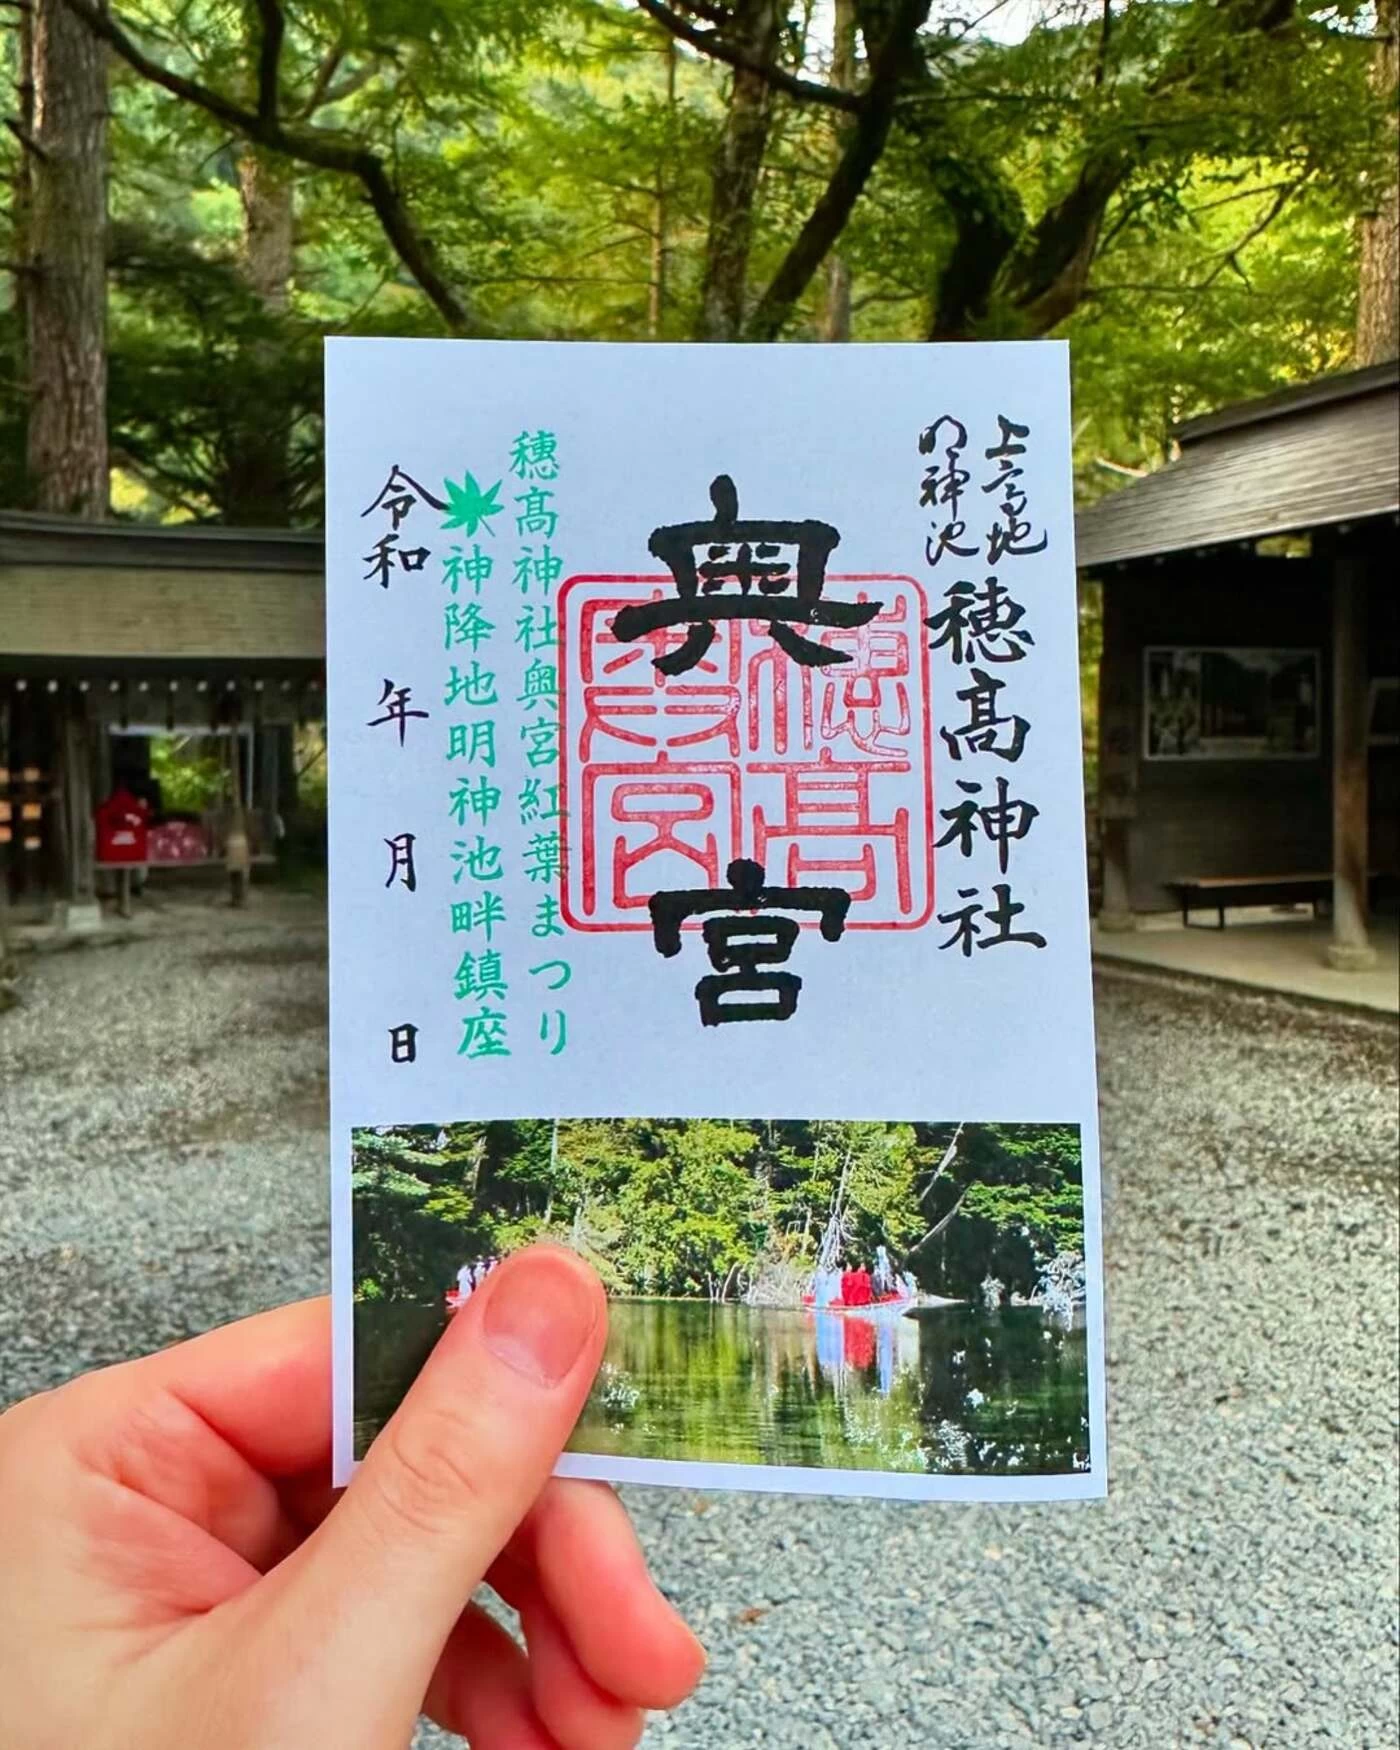 上高地
明神池
穂髙神社
奥宮
穂髙奥宮
穂髙神社奥宮紅葉まつり
神降地明神池畔鎮座
令和 年 月 日